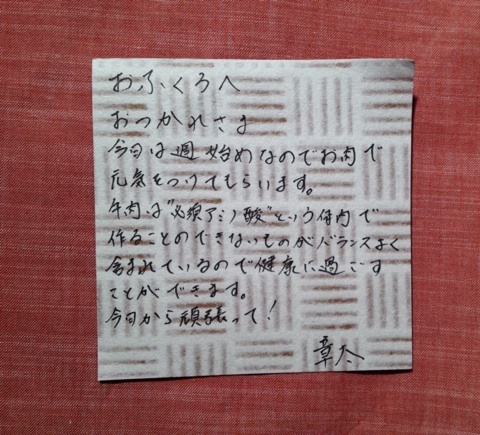 おふくろへ
おつかれさま
今日は週始めなのでお肉で
元気をつけてもらいます。
牛肉は"必須アミノ酸"という体内で
作ることのできないものがバランスよく
含まれているので健康に過ごす
ことができます。
今日から頑張って!
章太